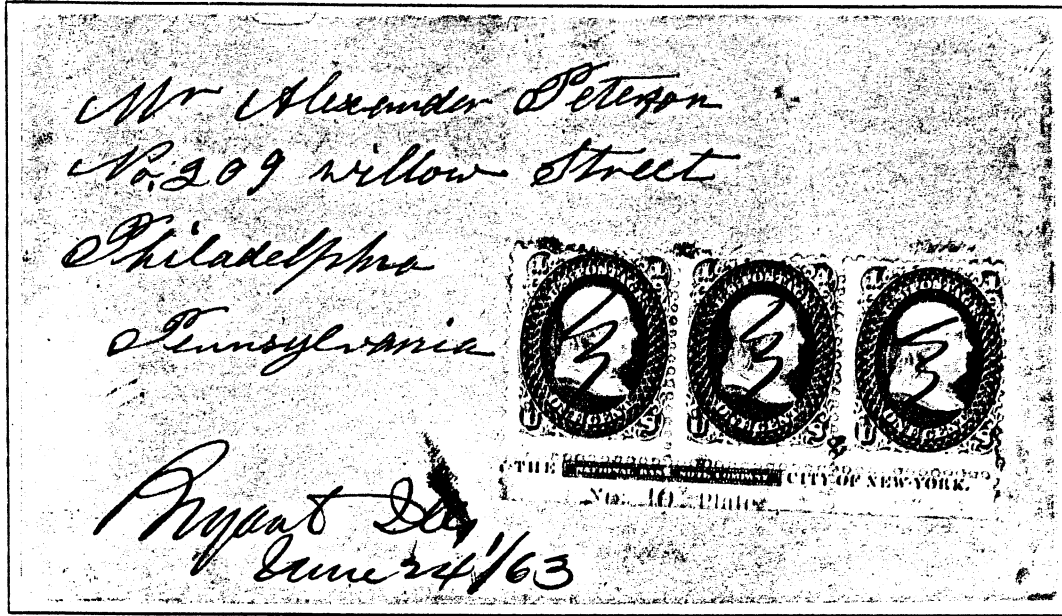 Mr Alexander Peterson
No. 209 willow Street
Philadelphia
Pennsylvania
U.S. POSTAGE U.S. POSTAGE U.S. POSTAGE
3 3 3
ONE CENT ONE CENT ONE CENT
U S U S U S
THE NATIONAL BANK NOTE COMPANY CITY OF NEW-YORK.
No. 10 Plate
Bryant
June 24/63